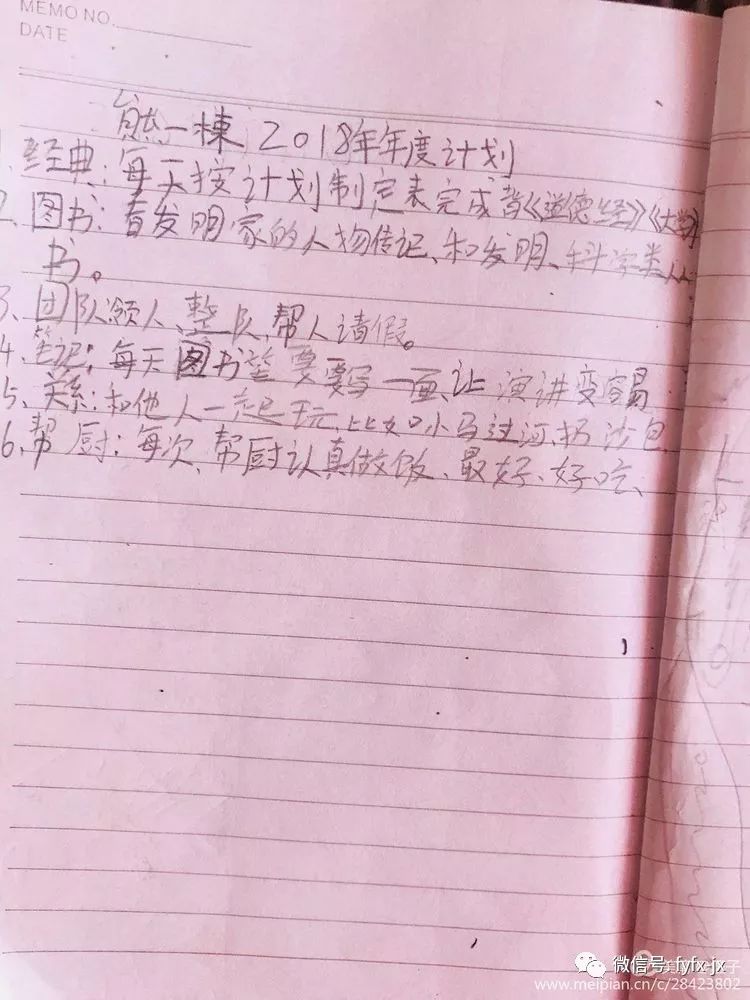 MEMO NO.
DATE
熊一棟 2018年年度计划
1、经典:每天按计划制定表完成背《道德经》《大学》
2、图书:看发明家的人物传记、和发明、科学类
书。
3、团队领人、整队、帮人请假。
4、笔记:每天图书笔要要写一面、让演讲变容易
5、关系:和他人一起玩、比如小马过河、扔沙包
6、帮厨:每次、帮厨认真做饭、最好、好吃、
微信号: fyfx-jx
www.meipian.cn/c/28423802